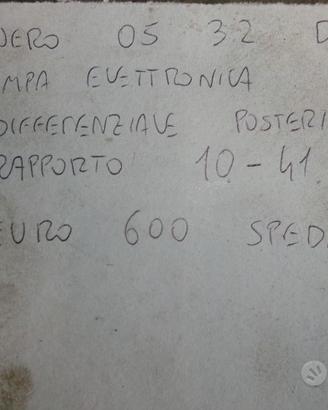 JERO 05 3.2 D
MPA ELETTRONICA
DIFFERENZIALE POSTERI
RAPPORTO 10-41
EURO 600 SPED